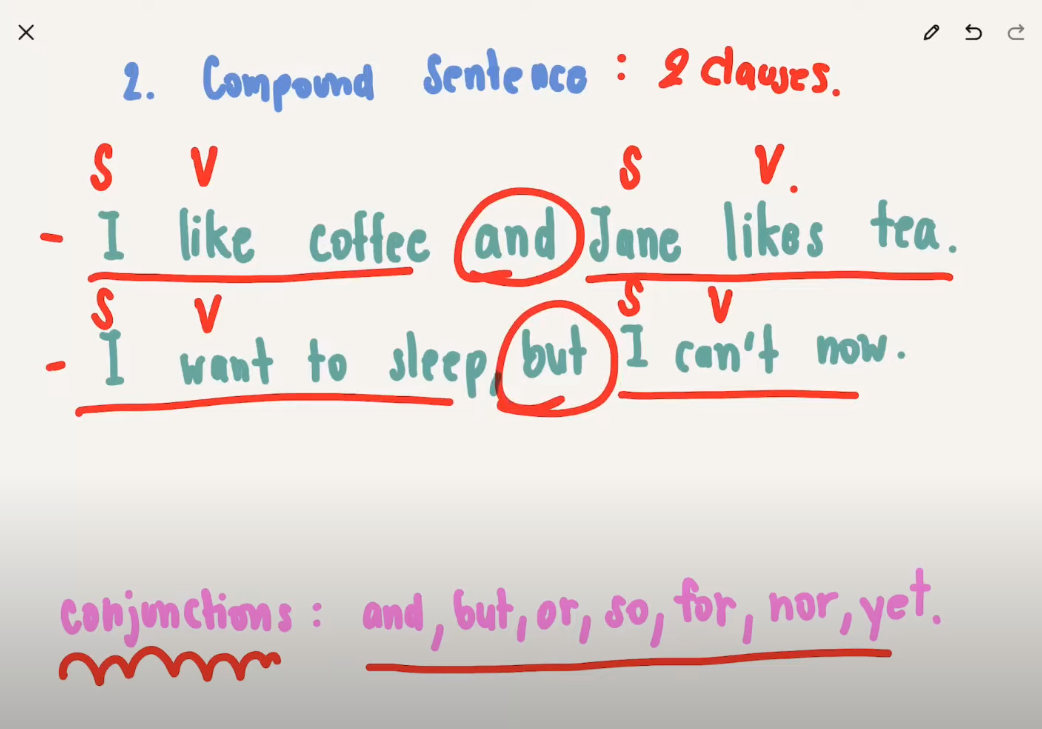 2. Compound Sentence : 2 clauses.
S V S V.
- I like coffee and Jane likes tea.
S V S V
- I want to sleep, but I can't now.
conjunctions : and, but, or, so, for, nor, yet.